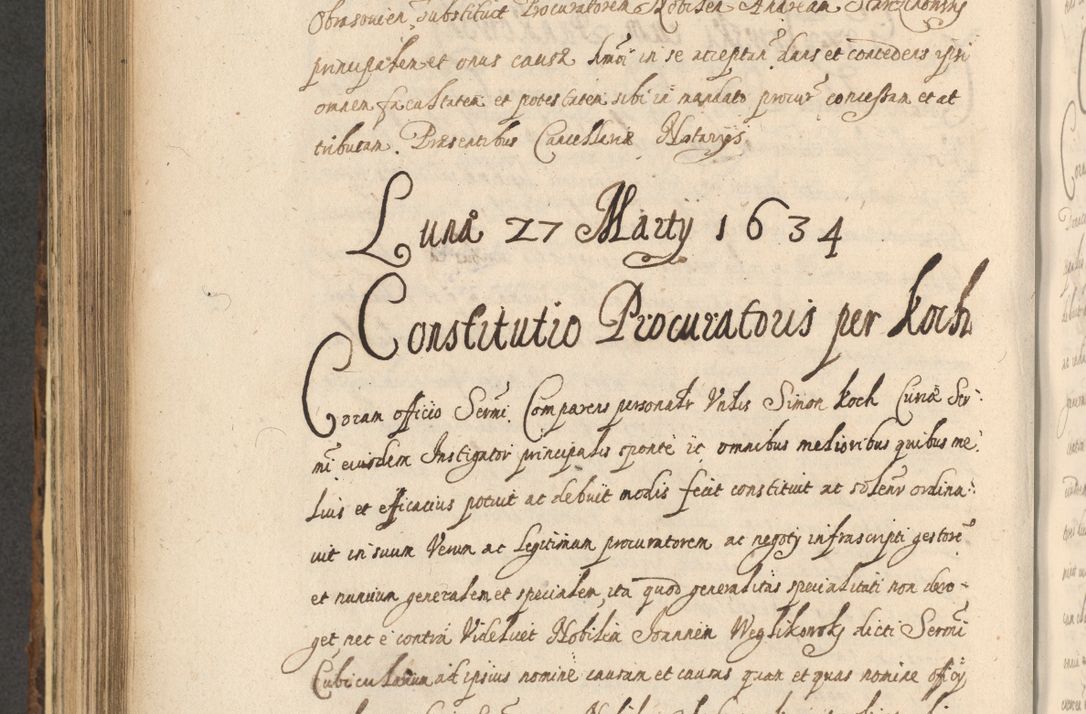 Obrasovien̄ substituit Procuratorem Nobilem Andream
principalem et onus causæ hmōi in se acceptan̄ dans et concedens ipsi
omnem facultatem et potestatem sibi in mandato procur̄ concessam et at
tributam. Præsentibus Cancellariæ Notarijs
Lunæ 27 Martij 1634
Constitutio Procuratoris per Koch
Coram officio Sermi Comparens personaltr Vntlis Simon Koch Curiæ Ser:
mi eiusdem Instigator principalis sponte ac omnibus melioribus quibus me:
lius et efficacius potuit ac debuit modis fecit constituit ac solenr ordina:
uit in suum Verum ac Legitimum procuratorem ac negotij infrascripti gestorē
et nuncium generalem et specialem, ita quod generalitas specialitati non dero-
get nec e contra Videlicet Nobilem Joannem Weglikowsky dicti Sermi
Cubicularium ad ipsius nomine causam et causas quam et quas nomine officij